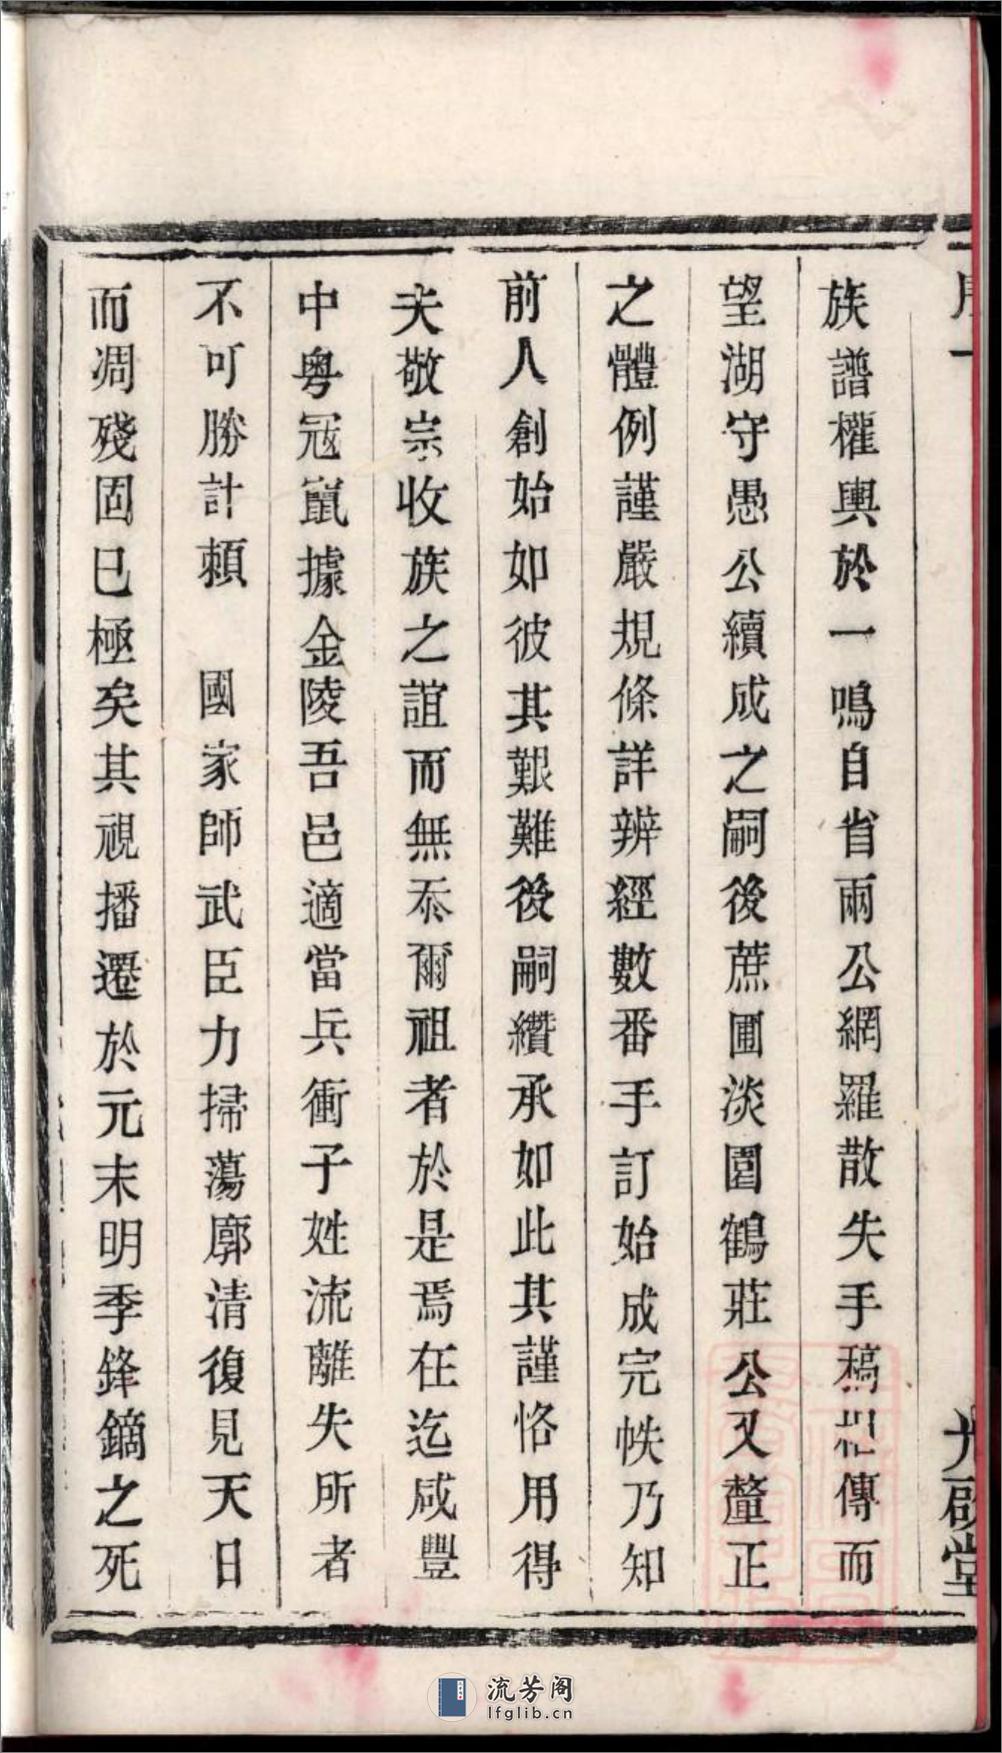 族譜權輿於一鳴自省兩公網羅散失手稿相傳而
望湖守愚公續成之嗣後蔗圃淡園鶴莊公又釐正
之體例謹嚴規條詳辨經數番手訂始成完帙乃知
前人創始如彼其艱難後嗣纘承如此其謹恪用得
夫敬宗收族之誼而無忝爾祖者於是焉在迄咸豐
中粵冦竄據金陵吾邑適當兵衝子姓流離失所者
不可勝計頼 國家師武臣力掃蕩廓清復見天日
而凋殘固已極矣其視播遷於元末明季鋒鏑之死
啟堂
流芳阁
lfglib.cn